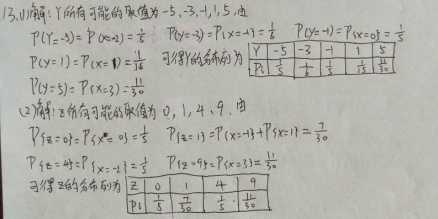 13.(1)解：Y所有可能的取值为-5,-3,-1,1,5,由
P(Y=-5)=P(x=-2)=1/5 P(Y=-3)=P(x=-1)=1/6 P(Y=-1)=P{x=0}=1/5
P(Y=1)=P(x=1)=1/15 可得Y的分布列为 Y -5 -3 -1 1 5
P(Y=5)=P(x=3)=11/30 Pi 1/5 1/6 1/5 1/15 11/30
(2)解：Z所有可能的取值为0,1,4,9.由
P{Z=0}=P{x=0}=1/5 P{Z=1}=P{x=-1}+P{x=1}=7/30
P{Z=4}=P{x=-2}=1/5 P{Z=9}=P{x=3}=11/30
可得Z的分布列为 Z 0 1 4 9
Pi 1/5 7/30 1/5 11/30